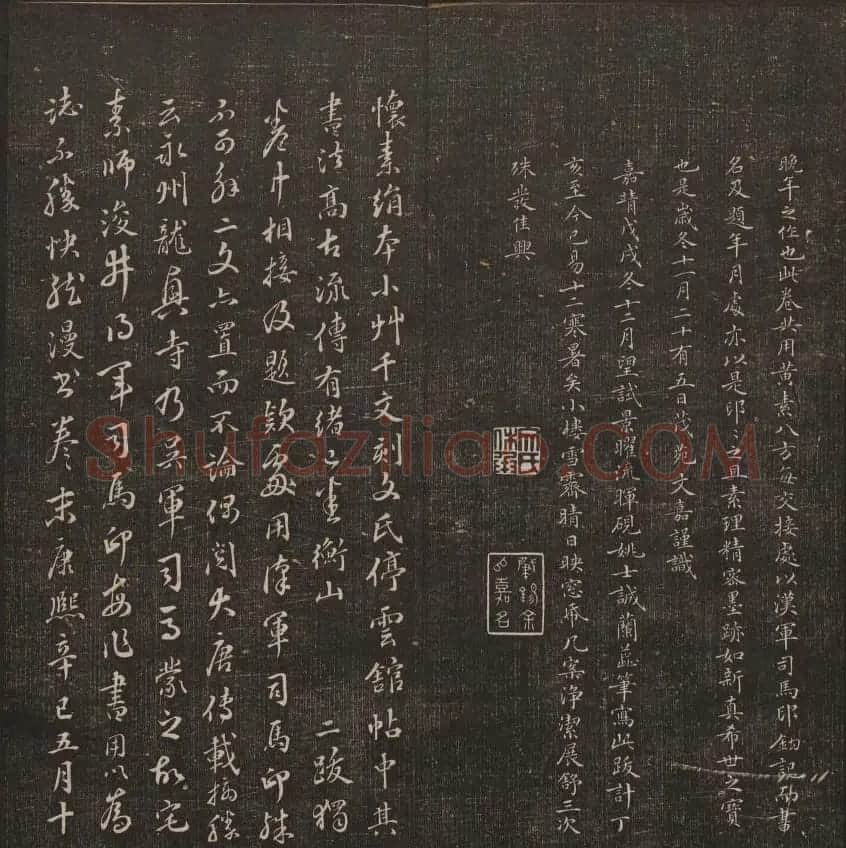 晚年之作也此卷共用黃素八方每交接處以漢軍司馬印鈐記而書
名及題年月處亦以是印印之且素理精密墨跡如新真希世之寶
也是歲冬十一月二十有五日茂苑文嘉謹識
嘉靖戊戌冬十二月望試景曜流暉硯姚士誠蘭蕊筆寫此跋計丁
亥至今已易十二寒暑矣小樓雪霽晴日映窓几案淨潔展舒三次
殊發佳興
文氏休承
肇錫余以嘉名
懷素絹本小艸千文刻文氏停雲館帖中其
書法高古流傳有緒
衡山
二跋獨
卷中相接及題款處用漢軍司馬印殊
不可解二文亦置而不論偶閱大唐傳載
云永州龍真寺乃吳軍司馬蒙之故宅
素師浚井得軍司馬印每作書用以為
誌不勝快然漫書卷末康熙辛巳五月十
Shufaziliao.COM